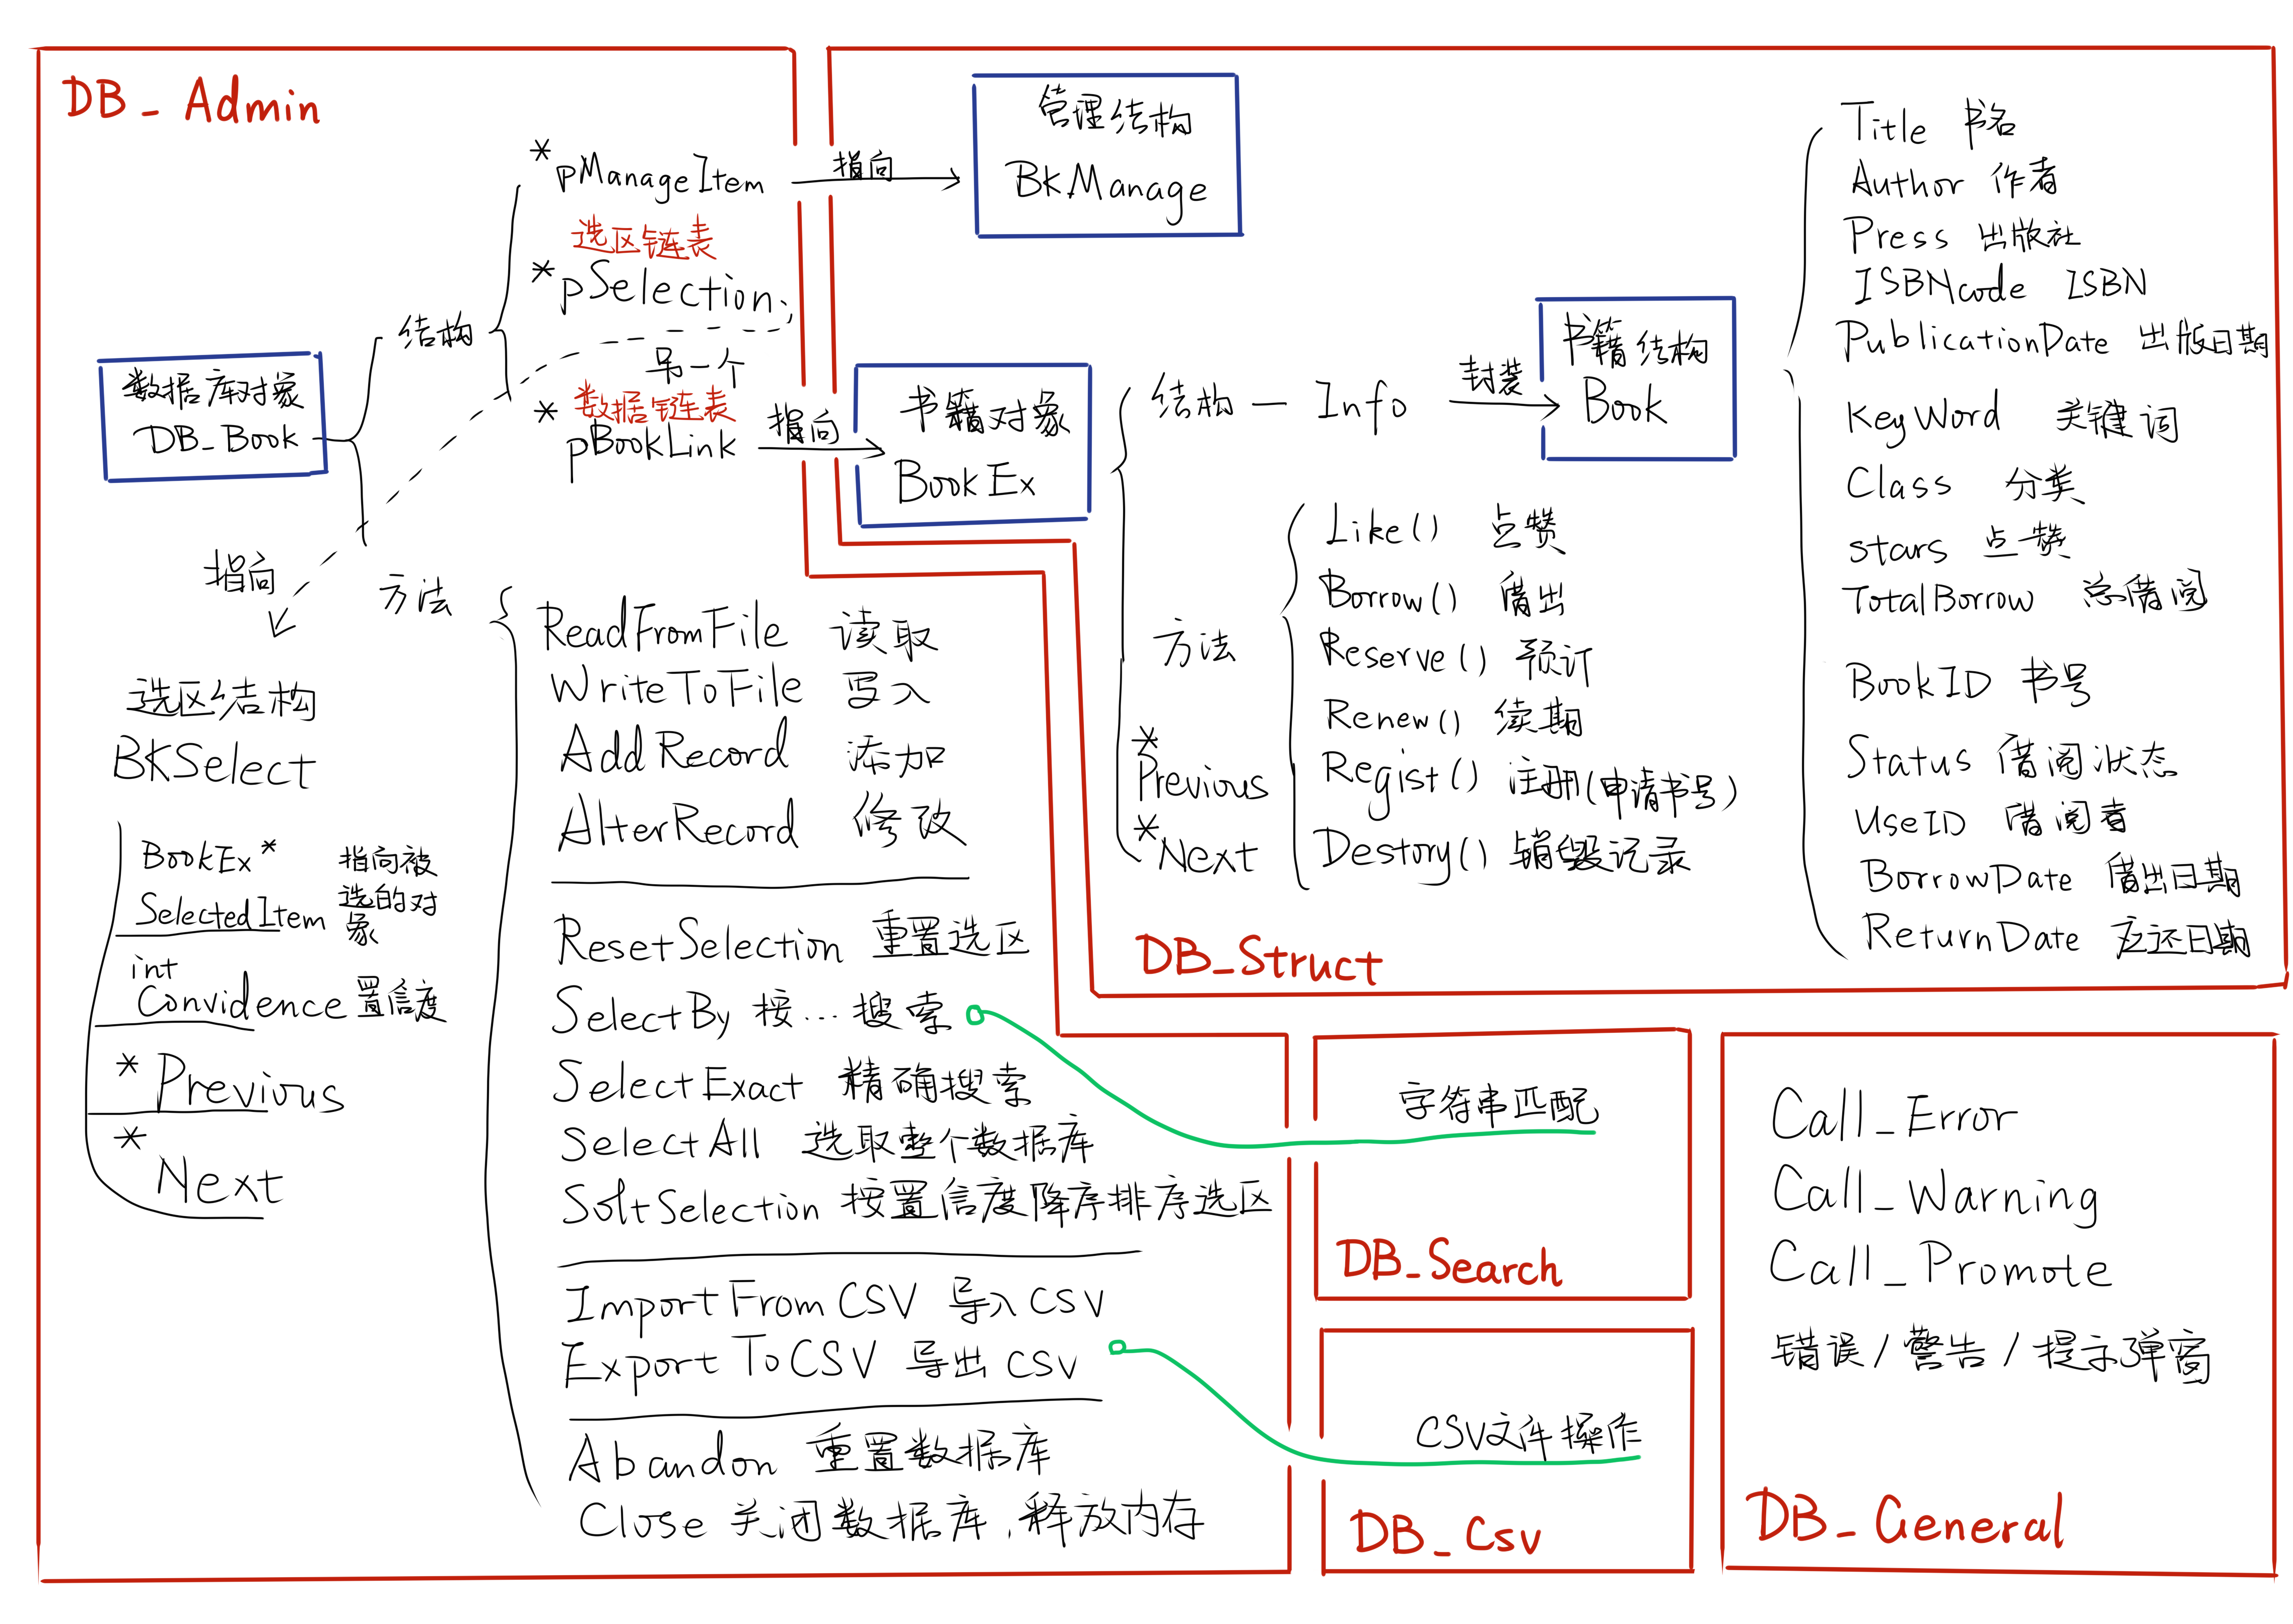 DB_Admin
数据库对象
DB_Book
结构
*pManageItem
指向
选区链表
*pSelection
另一个
数据链表
*pBookLink
指向
指向
方法
选区结构
BKSelect
BookEx*
SelectedItem
指向被
选的对
象
int
Convidence 置信度
*Previous
*Next
ReadFromFile 读取
WriteToFile 写入
AddRecord 添加
AlterRecord 修改
ResetSelection 重置选区
SelectBy 按…搜索
SelectExact 精确搜索
SelectAll 选取整个数据库
SoltSelection 按置信度降序排序选区
ImportFromCSV 导入CSV
ExportToCSV 导出CSV
Abandon 重置数据库
Close 关闭数据库,释放内存
管理结构
BKManage
书籍对象
BookEx
结构 — Info
封装
书籍结构
Book
方法
Like() 点赞
Borrow() 借出
Reserve() 预订
Renew() 续期
Regist() 注册(申请书号)
Destory() 销毁记录
*Previous
*Next
Title 书名
Author 作者
Press 出版社
ISBNcode ISBN
PublicationDate 出版日期
KeyWord 关键词
Class 分类
stars 点赞
TotalBorrow 总借阅
BookID 书号
Status 借阅状态
UseID 借阅者
BorrowDate 借出日期
ReturnDate 应还日期
DB_Struct
字符串匹配
DB_Search
CSV文件操作
DB_Csv
Call_Error
Call_Warning
Call_Promote
错误/警告/提示弹窗
DB_General